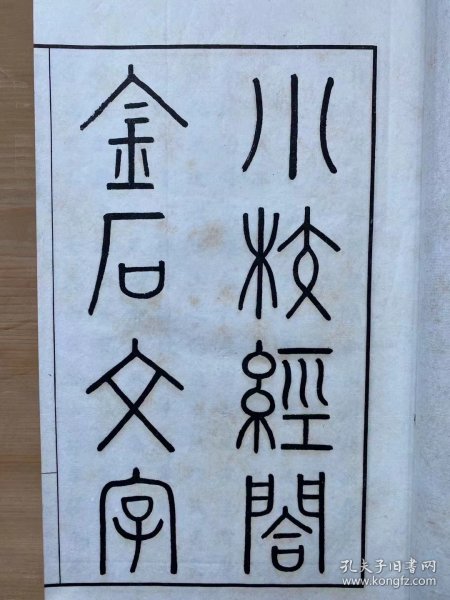 小校經閣
金石文字
孔夫子旧书网
www.kongfz.com